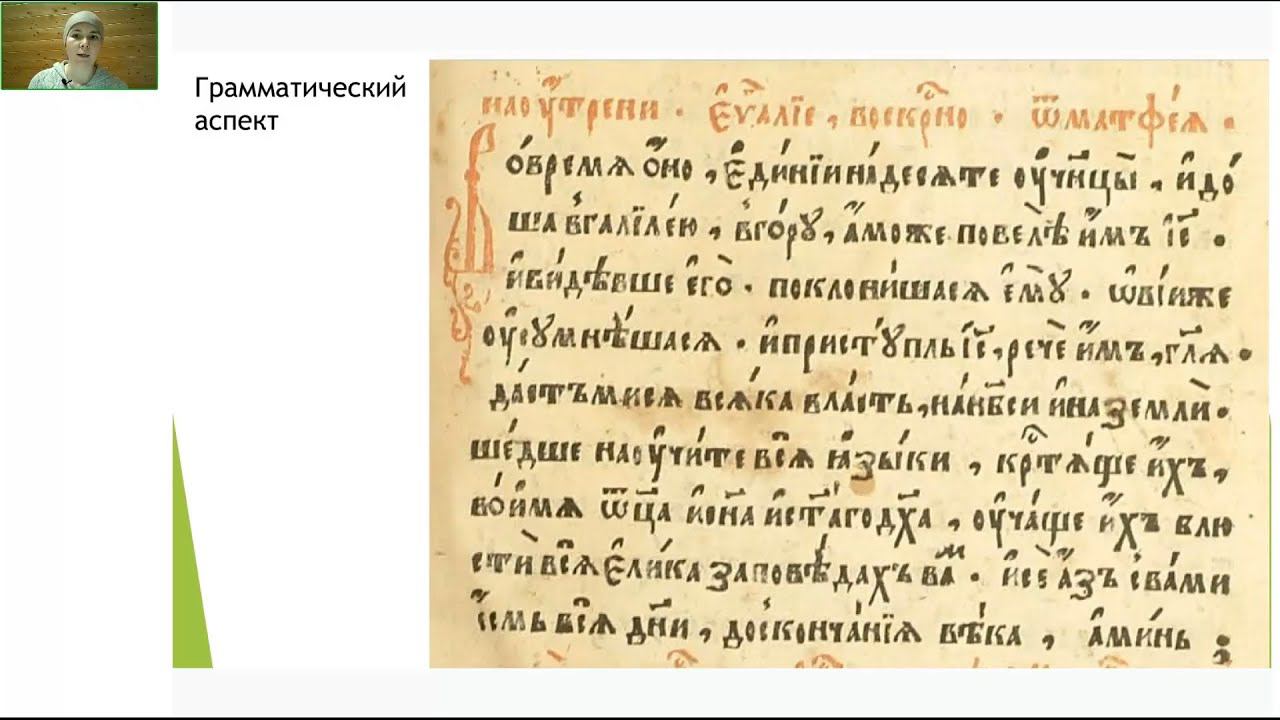 Грамматический
аспект
наоу҆́трени · є҆у҃алїе , воскр҃но · ѿматѳе́а ·
Во́время ѻ҆́но , є҆ди́нїи на́десѧте ᲂу҆ч҃нцы̀ , и҆до́
ша в҆галїле́ю , в҆го́рꙋ , а҆́може повелѣ̀ и҆́мъ і҆с҃ ·
и҆ви́дѣвше є҆го̀ · поклони́шасѧ є҆мꙋ̀ · ѡ҆ві́иже
ᲂу҆сꙋмнѣ́шасѧ · и҆пристꙋ́пль і҆с҃ , речѐ и҆́мъ , гл҃ѧ ·
да́стъмисѧ всѧ́ка вла́сть , на́нб҃си и҆ на землѝ ·
ше́дше наᲂу҆чи́те всѧ̀ ꙗ҆зы́ки , кр҃тѧ́ще и҆́хъ ,
во́и҆мѧ ѿц҃а и҆сн҃а и҆ст҃а́годх҃а , ᲂу҆ча́ще и҆́хъ блю
стѝ всѧ̀ є҆ли́ка заповѣ́дахъ ва́м · и҆сѐ а҆́зъ сва́ми
є҆́смь всѧ̀ дн҃и , доско́нча́нїѧ вѣ́ка , а҆ми́нь :